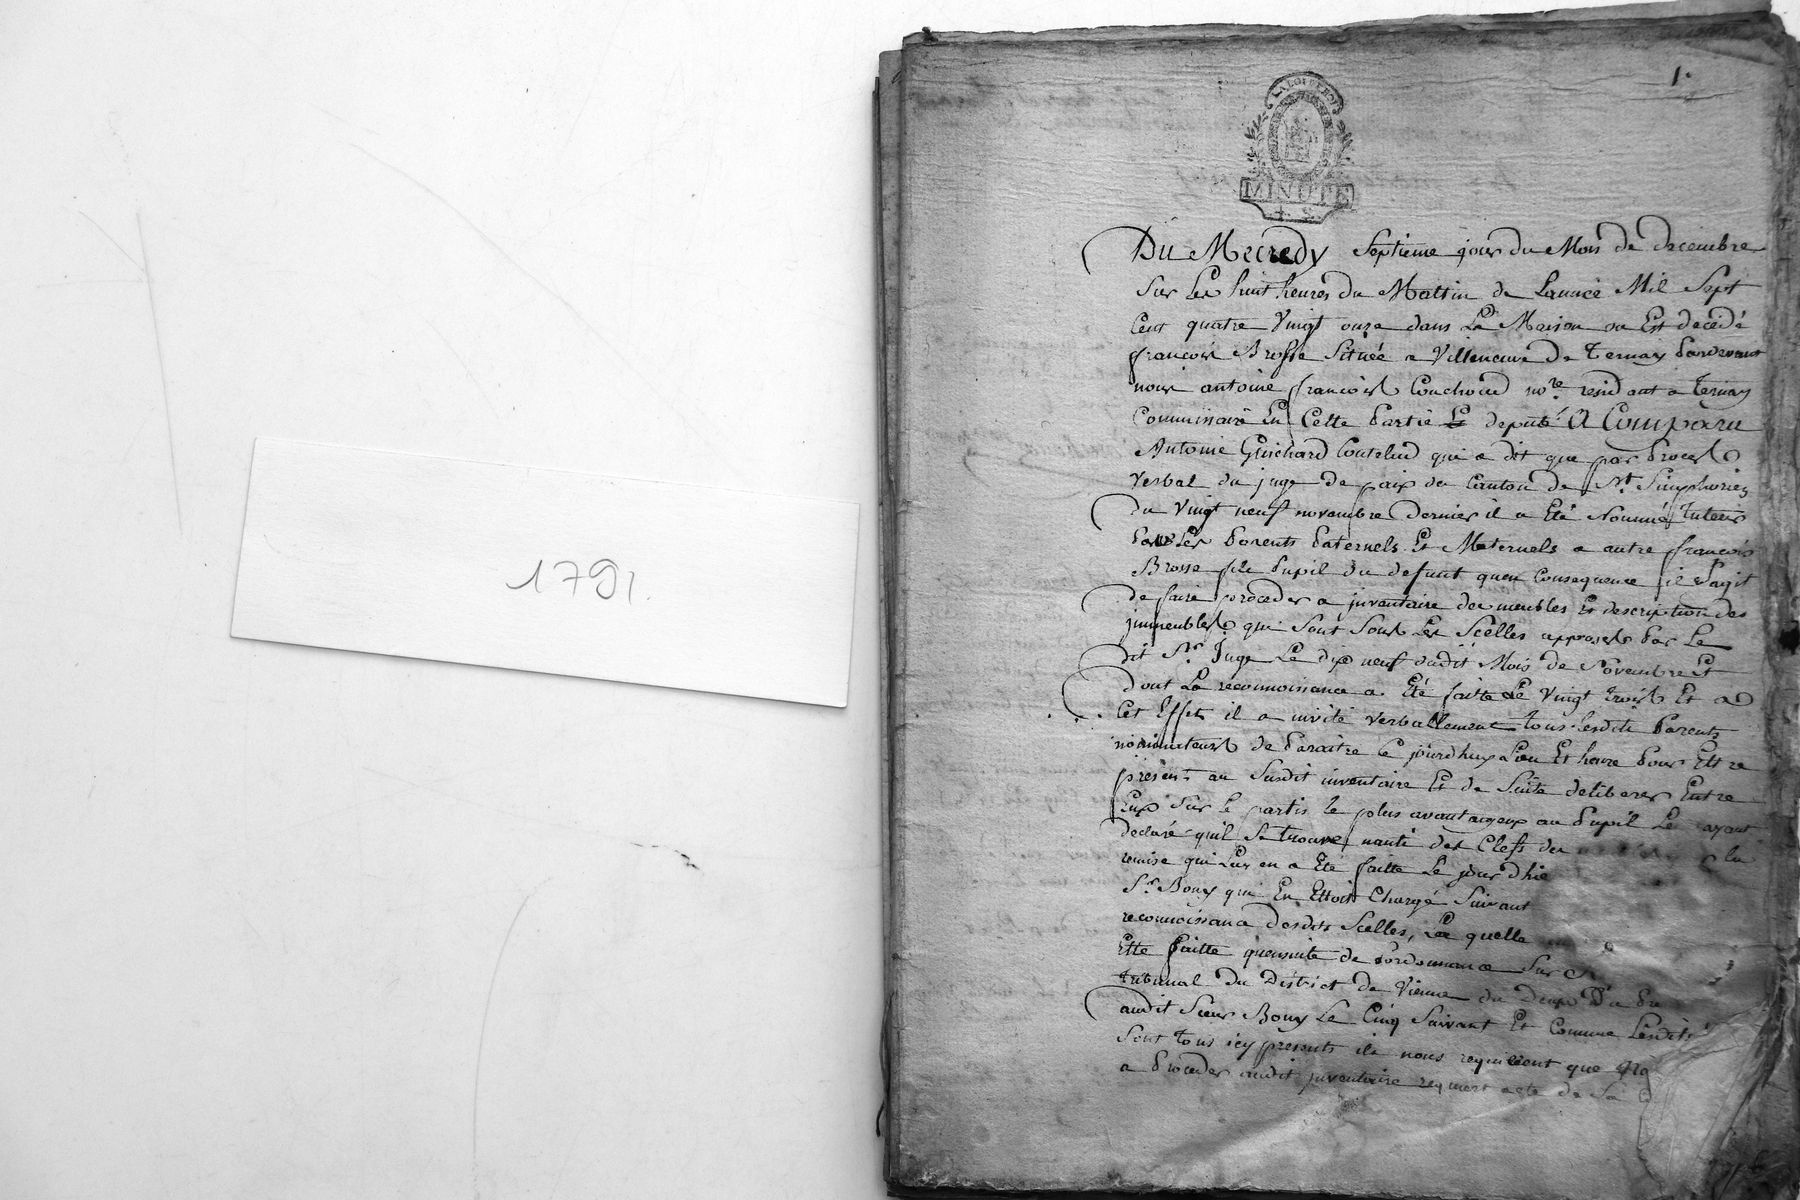 1791.
1.
LA LOI LE ROI
MINUTE
Du Mecredy Septieme jour du Mois de decembre
Sur Les huit heures du Mattin de Lannee Mil Sept
Cent quatre Vingt onze dans La Maison ou Est decedé
françois Brosse Située a Villeneuve De Ternay pardevant
nous antoine françois Couchoud nore. residant a Ternay
Commissaire En Cette partie Et deputé. A Comparu
Antoine Guichard Coutelier qui a dit que par proces
Verbal du juge de paix du Canton de St. Simphorien
du Vingt neuf novembre Dernier il a Eté Nommé Tuteur
par Les parents paternels Et Maternels a autre françois
Brosse fils pupil du defunt quen Consequence il Sagit
de faire proceder a jnventaire des meubles Et description des
jmmeubles qui Sont Sous Les Scelles apposes par Le
dit Sr. Juge Le dix neuf dudit Mois de Novembre Et
dont La reconnoissance a Eté faitte Le Vingt trois Et a
Cet Effet il a invité verballement tous lesdits parents
nominateurs de paraitre Ce jourdhuy Lieu Et heure pour Ettre
présents au Susdit inventaire Et de Suite deliberer Entre
Eux Sur le partis le plus avantageux au pupil Le ayant
declaré quil Se trouve nanti des Clefs des la
remise qui Luy en a Eté faitte Le jour dhie
Sr. Bouy qui En Ettoit Chargé Suivant
reconnoissance desdits Scelles, La quelle
Ette faitte quensuite de Lordonnance Sur
tribunal du District de Vienne du deux Du
audit Sieur Bouy Le Cinq Suivant Et Comme Lesdits
Sont tous icy presents ils nous requierent que
a proceder audit jnventaire requiert acte de Sa